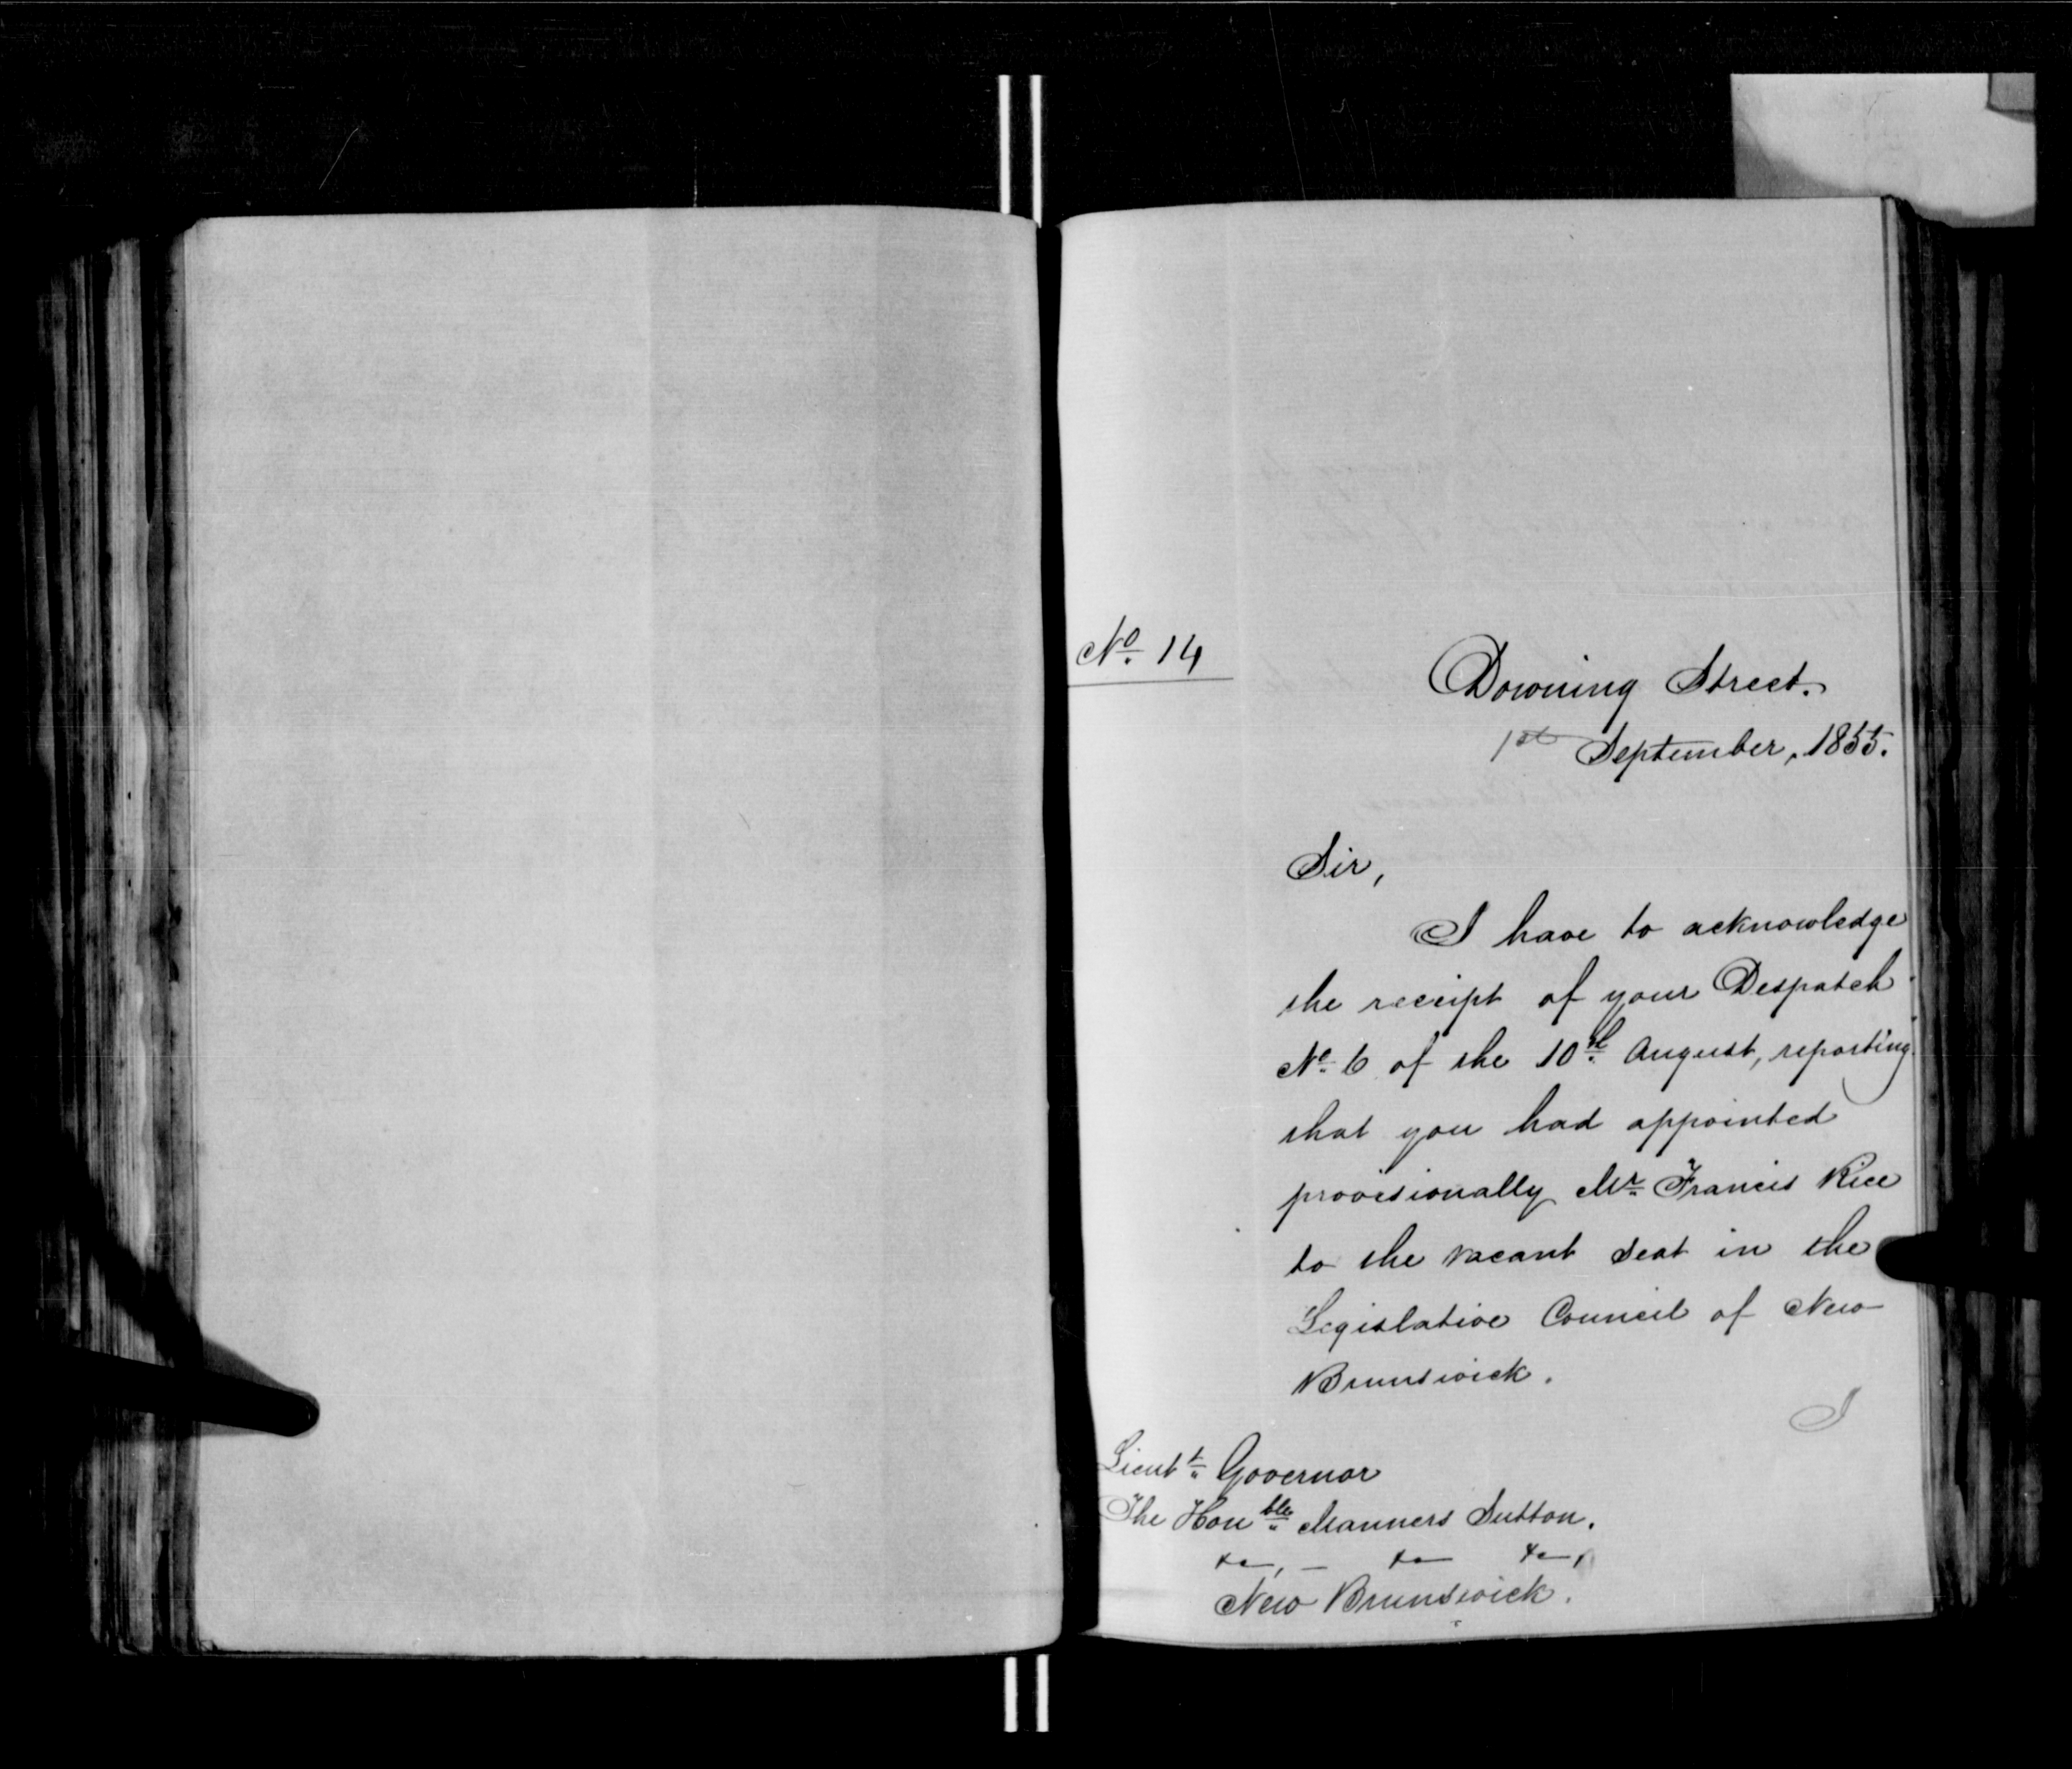 No. 14
Downing Street.
1st September, 1855.
Sir,
I have to acknowledge
the receipt of your Despatch
No. 6 of the 10th August, reporting
that you had appointed
provisionally Mr. Francis Rice
to the vacant seat in the
Legislative Council of New
Brunswick.
I
Lieutt. Governor
The Honble. Manners Sutton.
&c, &c &c,
New Brunswick.